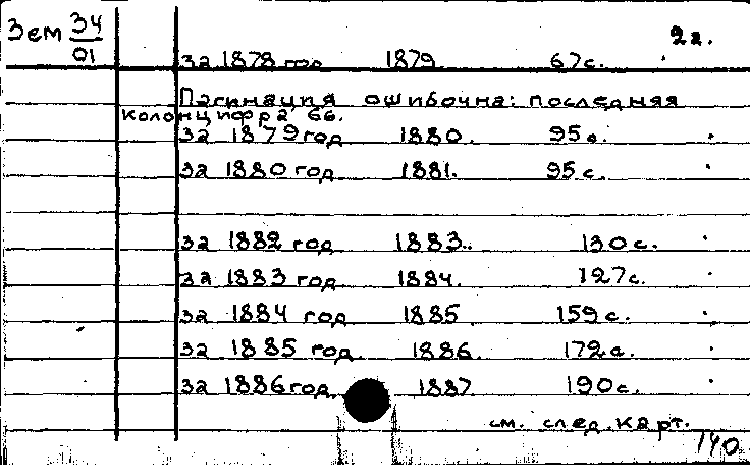 Зем 34/01
2г.
за 1878 год 1879. 67 с.
Пагинация ошибочна: последняя
колонцифра 66.
за 1879 год 1880. 95 с.
за 1880 год 1881. 95 с.
за 1882 год 1883. 130 с.
за 1883 год 1884. 127 с.
за 1884 год 1885 159 с.
за 1885 год 1886. 172 с.
за 1886 год 1887 190 с.
см. след. карт.
140